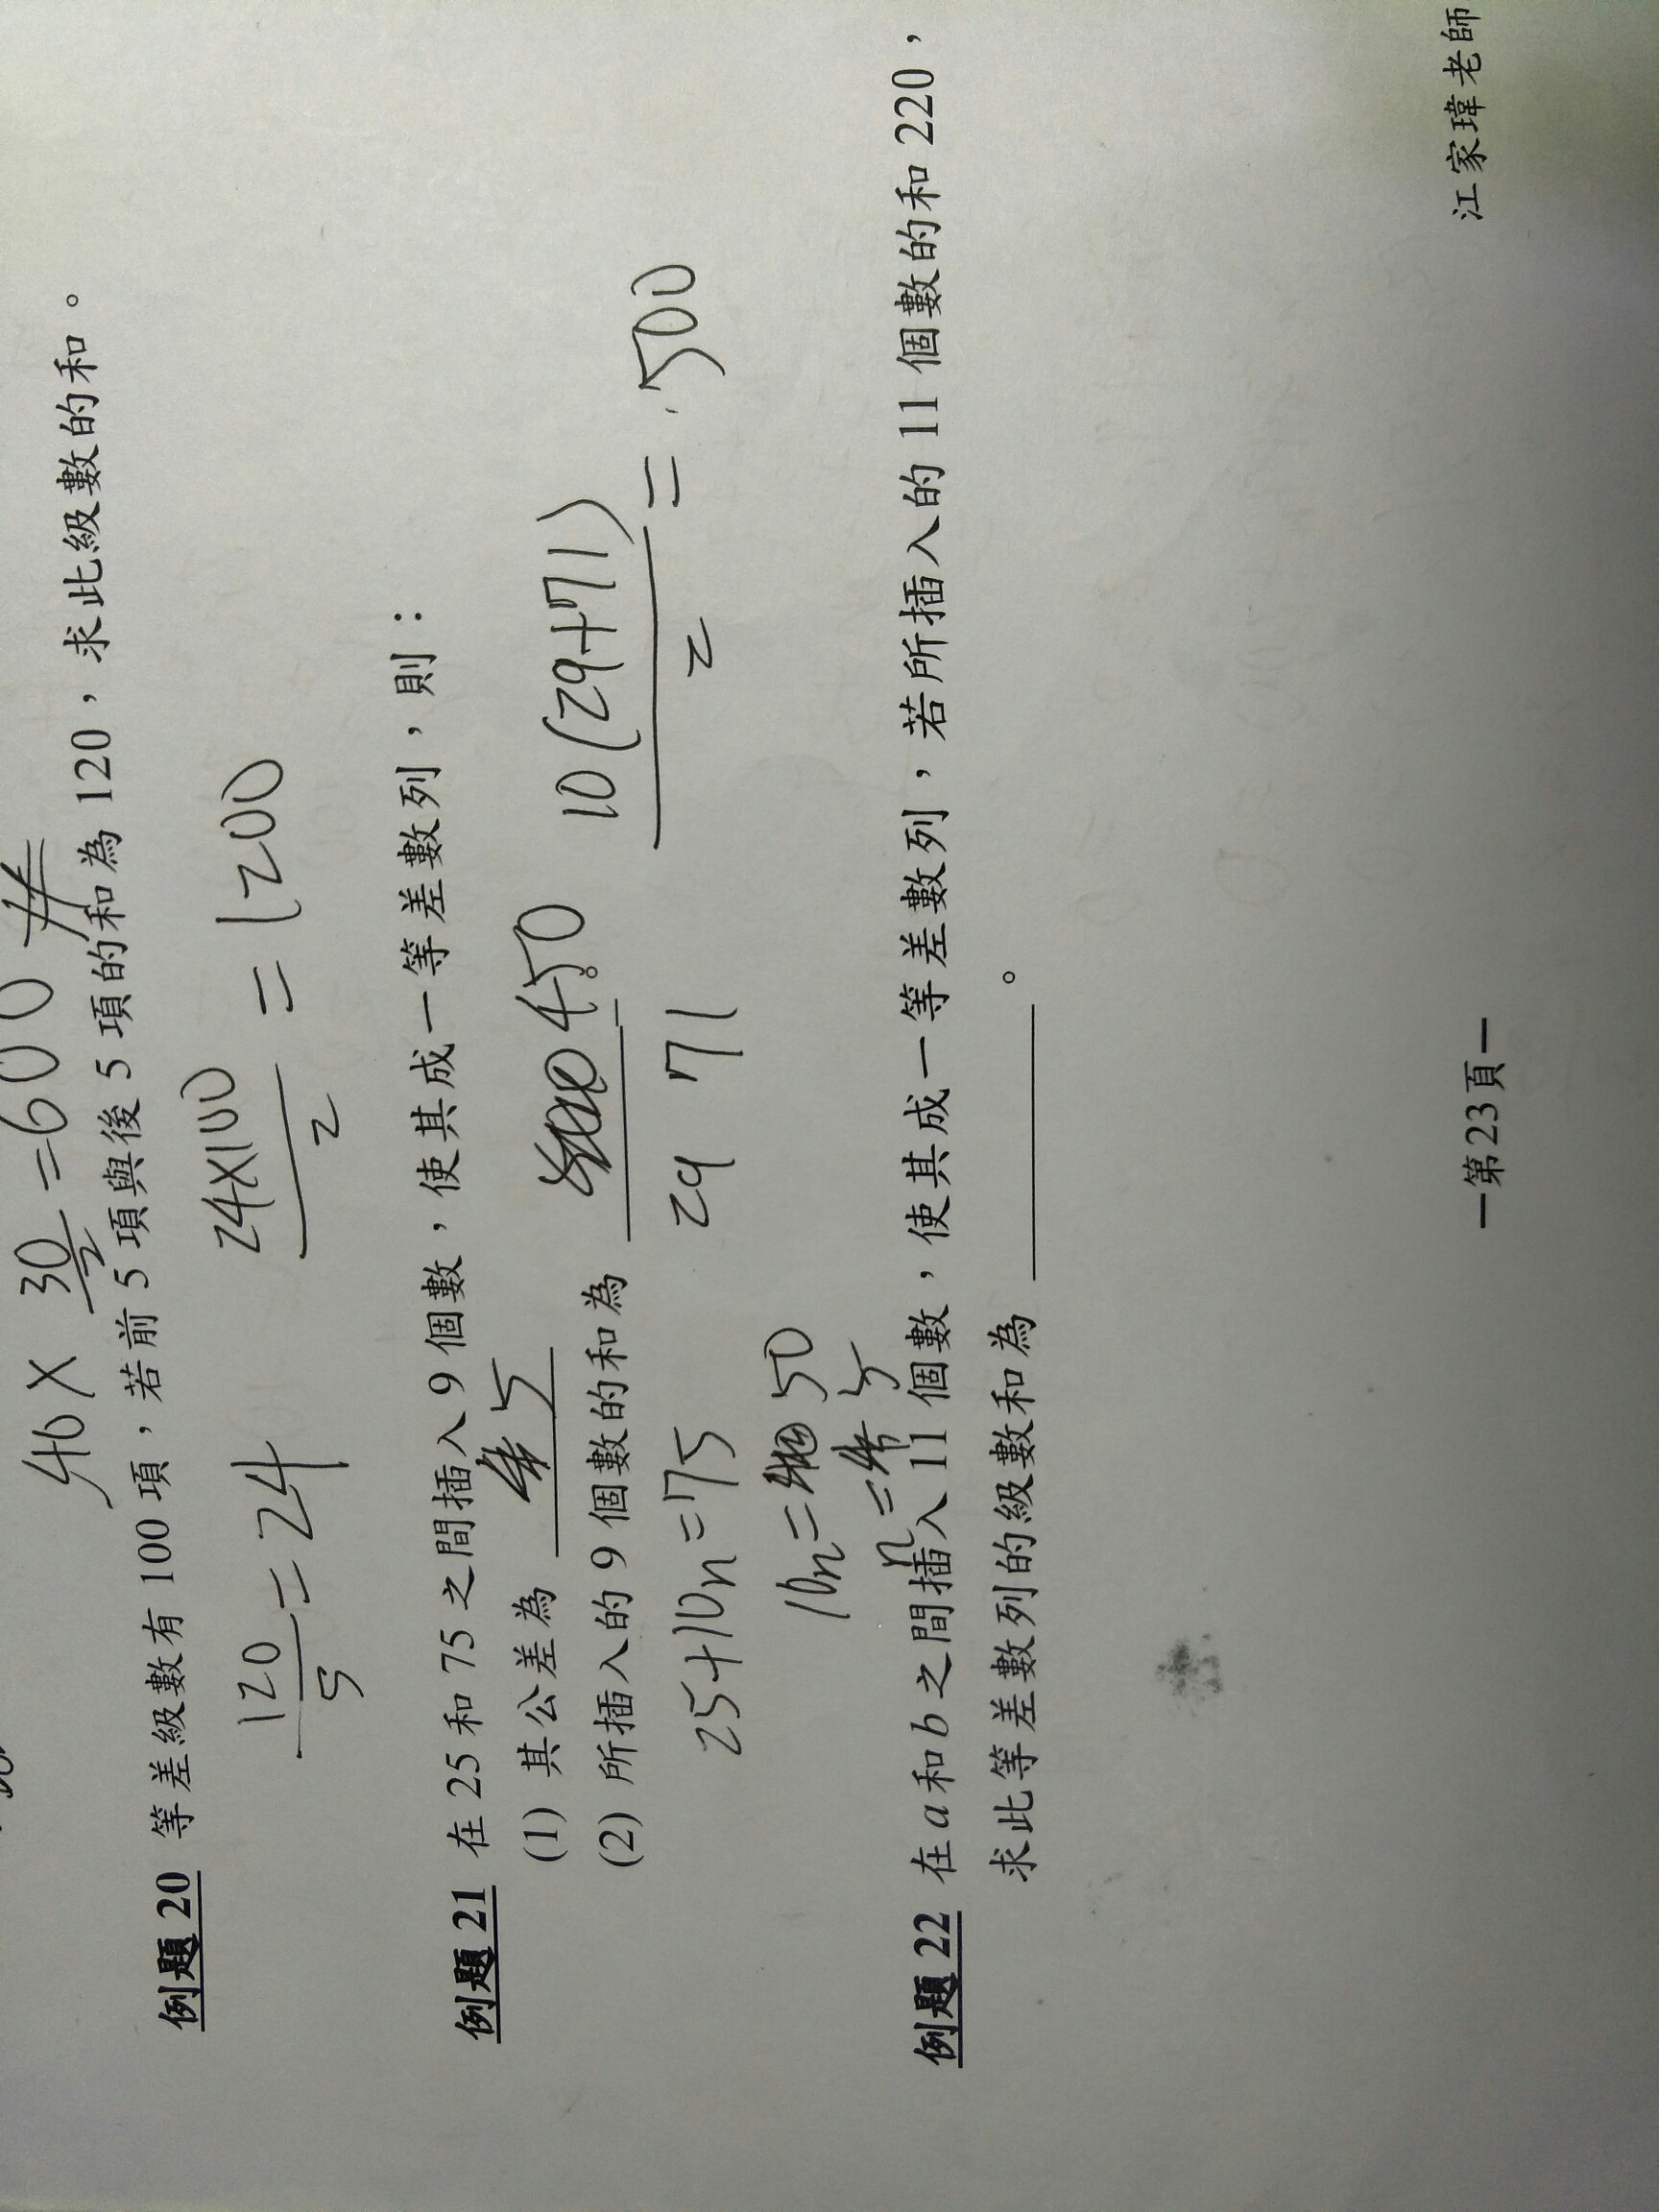 40 × 30/2 = 600 #
例題 20 等差級數有 100 項，若前 5 項與後 5 項的和為 120，求此級數的和。
120/5 = 24 24×100/2 = 1200
例題 21 在 25 和 75 之間插入 9 個數，使其成一等差數列，則：
(1) 其公差為 5
(2) 所插入的 9 個數的和為 450
25+10n=75 29 71 10(29+71)/2 = 500
10n = 50
n = 5
例題 22 在 a 和 b 之間插入 11 個數，使其成一等差數列，若所插入的 11 個數的和 220，
求此等差數列的級數和為＿＿＿＿。
－第23頁－
江家瑋老師